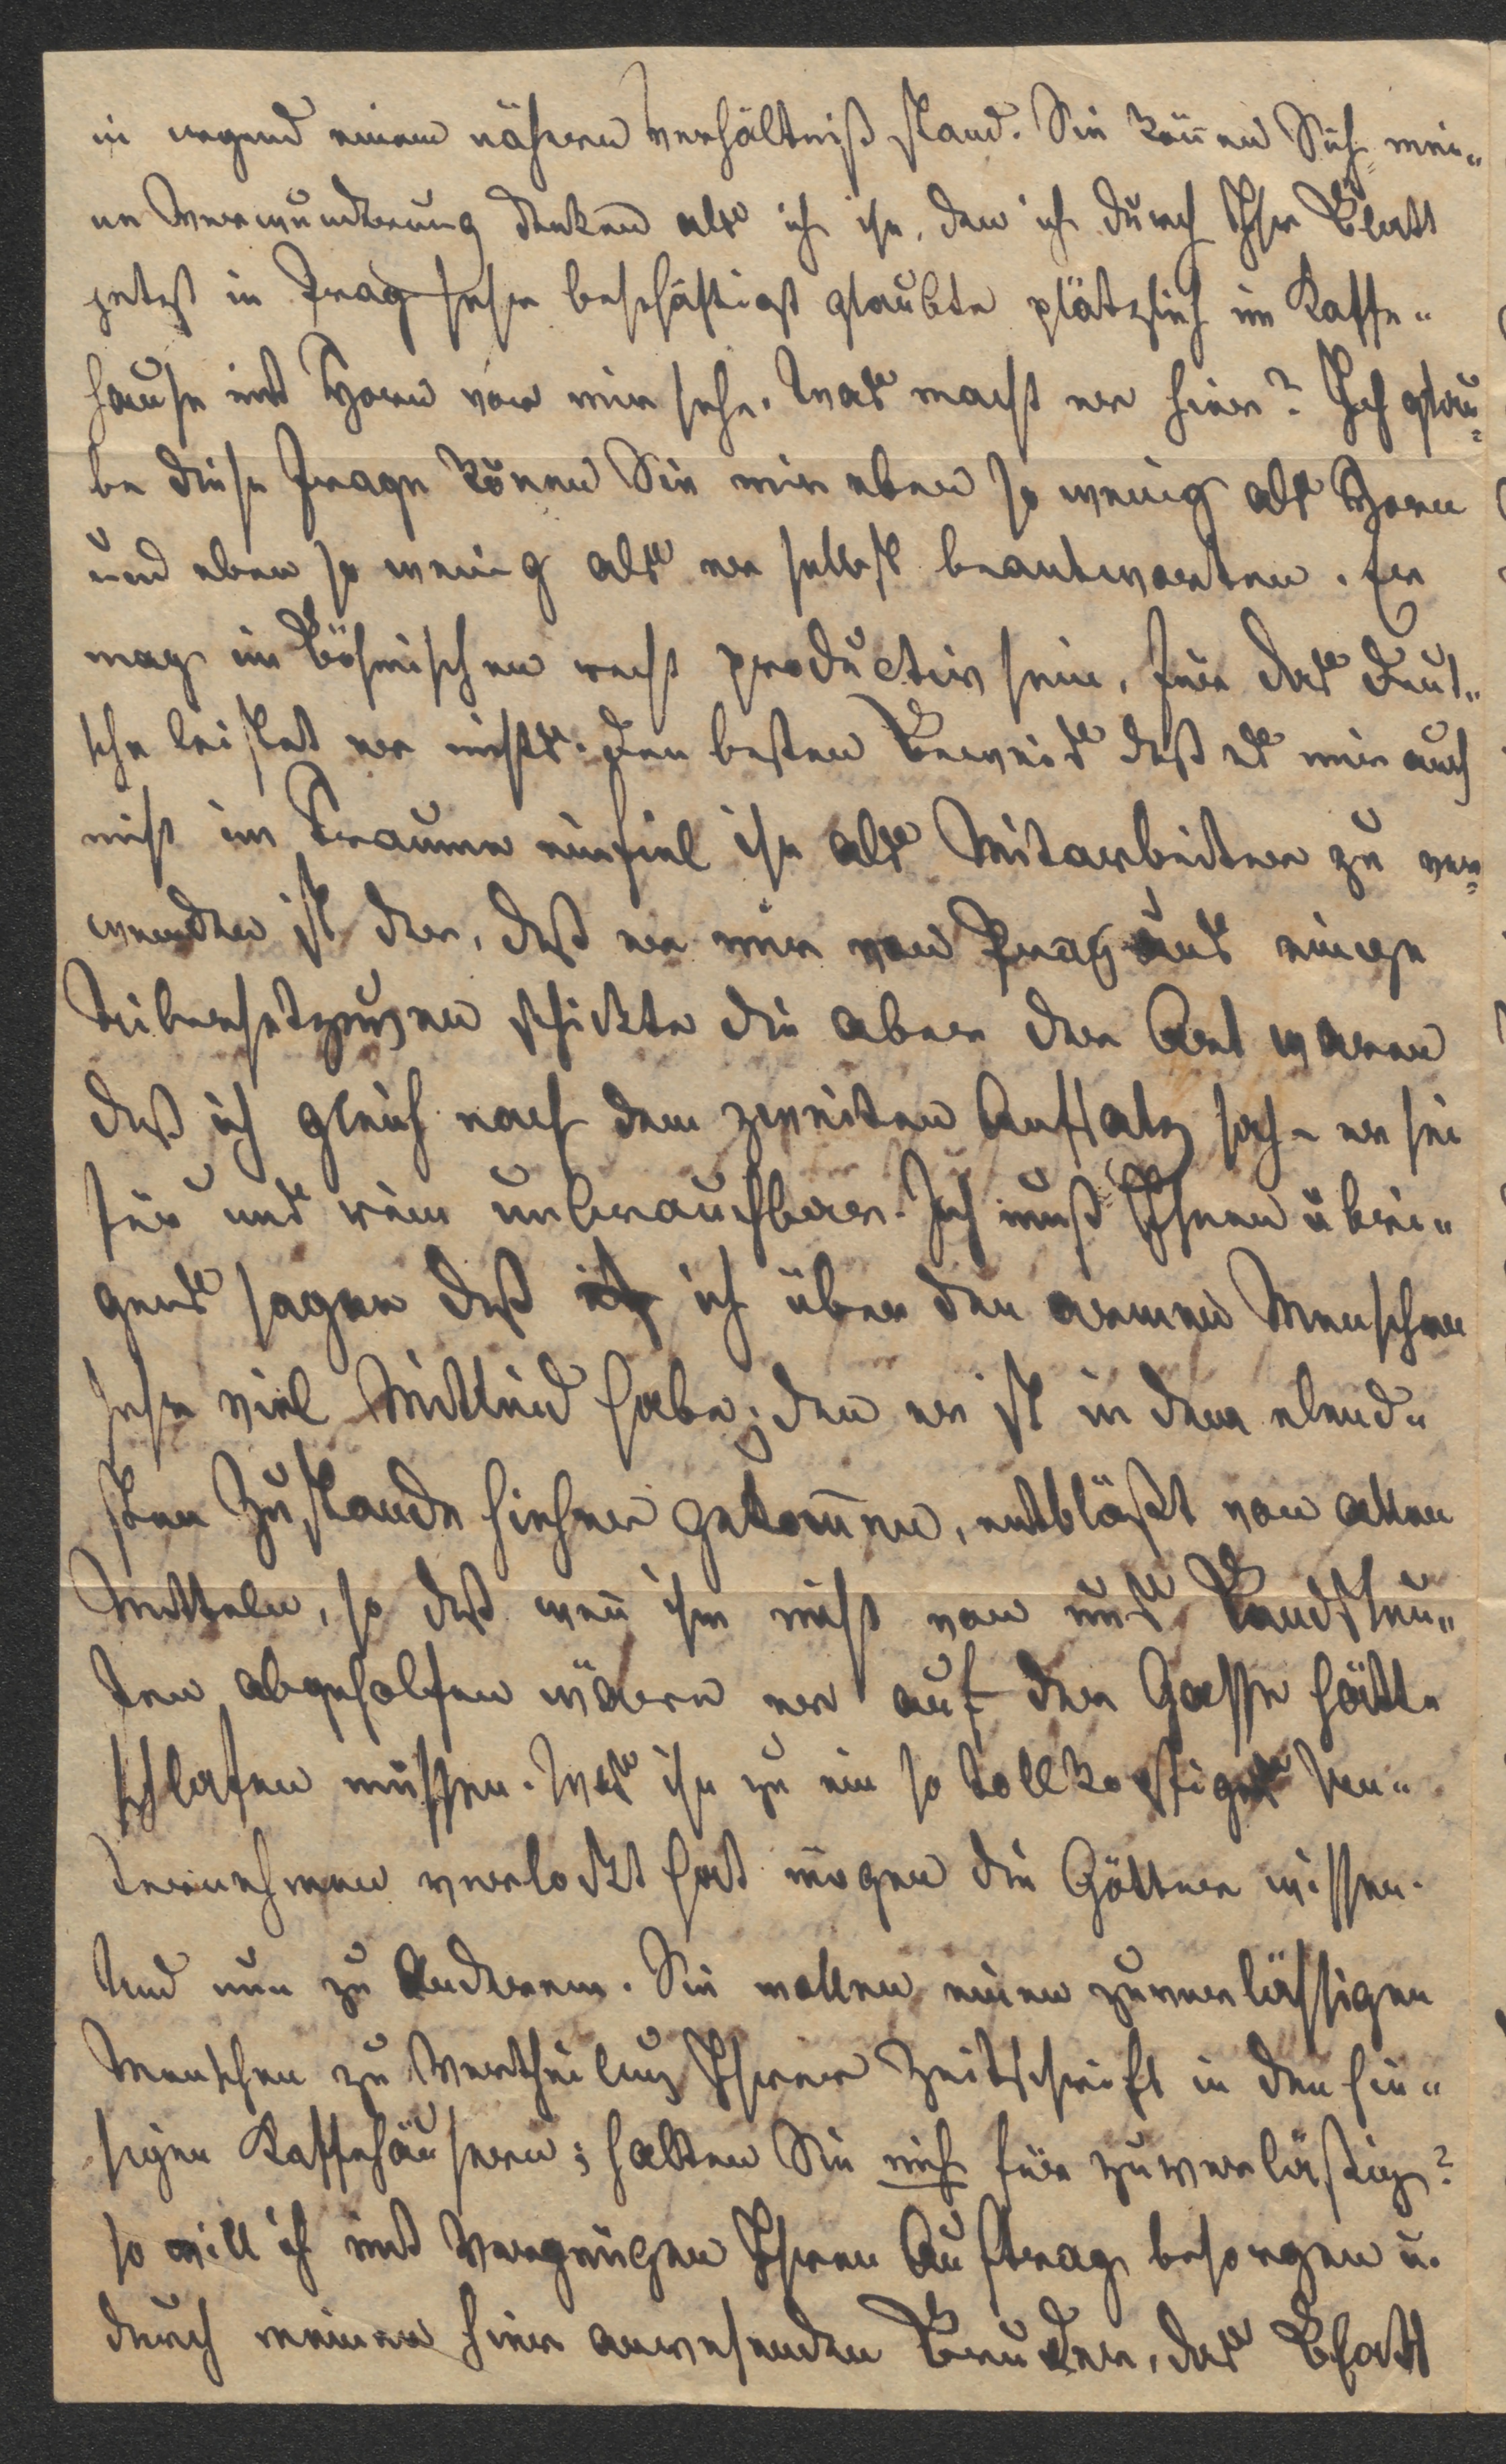 in irgend einem nähern Verhältniß stand. Sie köñen Sich mei„
ne Verwunderung denken als ich ihn, den ich durch Ihr Blatt
jetzt in Prag sehr beschäftigt glaubte plötzlich im Kaffe„
hause mit Horn vor mir sehe. Was macht er hier? Ich glau„
be diese Frage könen Sie mir eben so wenig als Horn
und eben so wenig als er selbst beantworten. Er
mag im Böhmischen recht productiv sein, für das Deut„
sche leistet er nichts. Den besten Beweis daß es mir auch
nicht im Traume einfiel ihn als Mitarbeiter zu ver„
wenden ist der, daß er mir von Prag aus einige
Uibersetzungen schickte die aber der Art waren
daß ich gleich nach dem zweiten Aufsatz sah er sei
für uns rein unbrauchbar. Ich muß Ihnen übri„
gens sagen daß ich über den armen Menschen
sehr viel Mitleid habe; den er ist in dem elend„
sten Zustande hieher gekom̅en, entblößt von allen
Mitteln, so daß weñ ihm nicht von uns Landsleu„
ten abgeholfen wären er auf der Gasse hätte
schlafen müssen. Was ihn zu ein so tollkopfiges Un„
ternehmen verlockt hat mögen die Götter wissen.
Und nun zu Anderem. Sie wollen einen zuverlässigen
Menschen zu Vertheilung Ihrer Zeitschrift in den hie„
sigen Kaffehäusern; halten Sie mich für zuverläßig?
so will ich mit Vergnügen Ihren Auftrag besorgen u.
durch meinen hier anwesenden Bruder, das Blatt